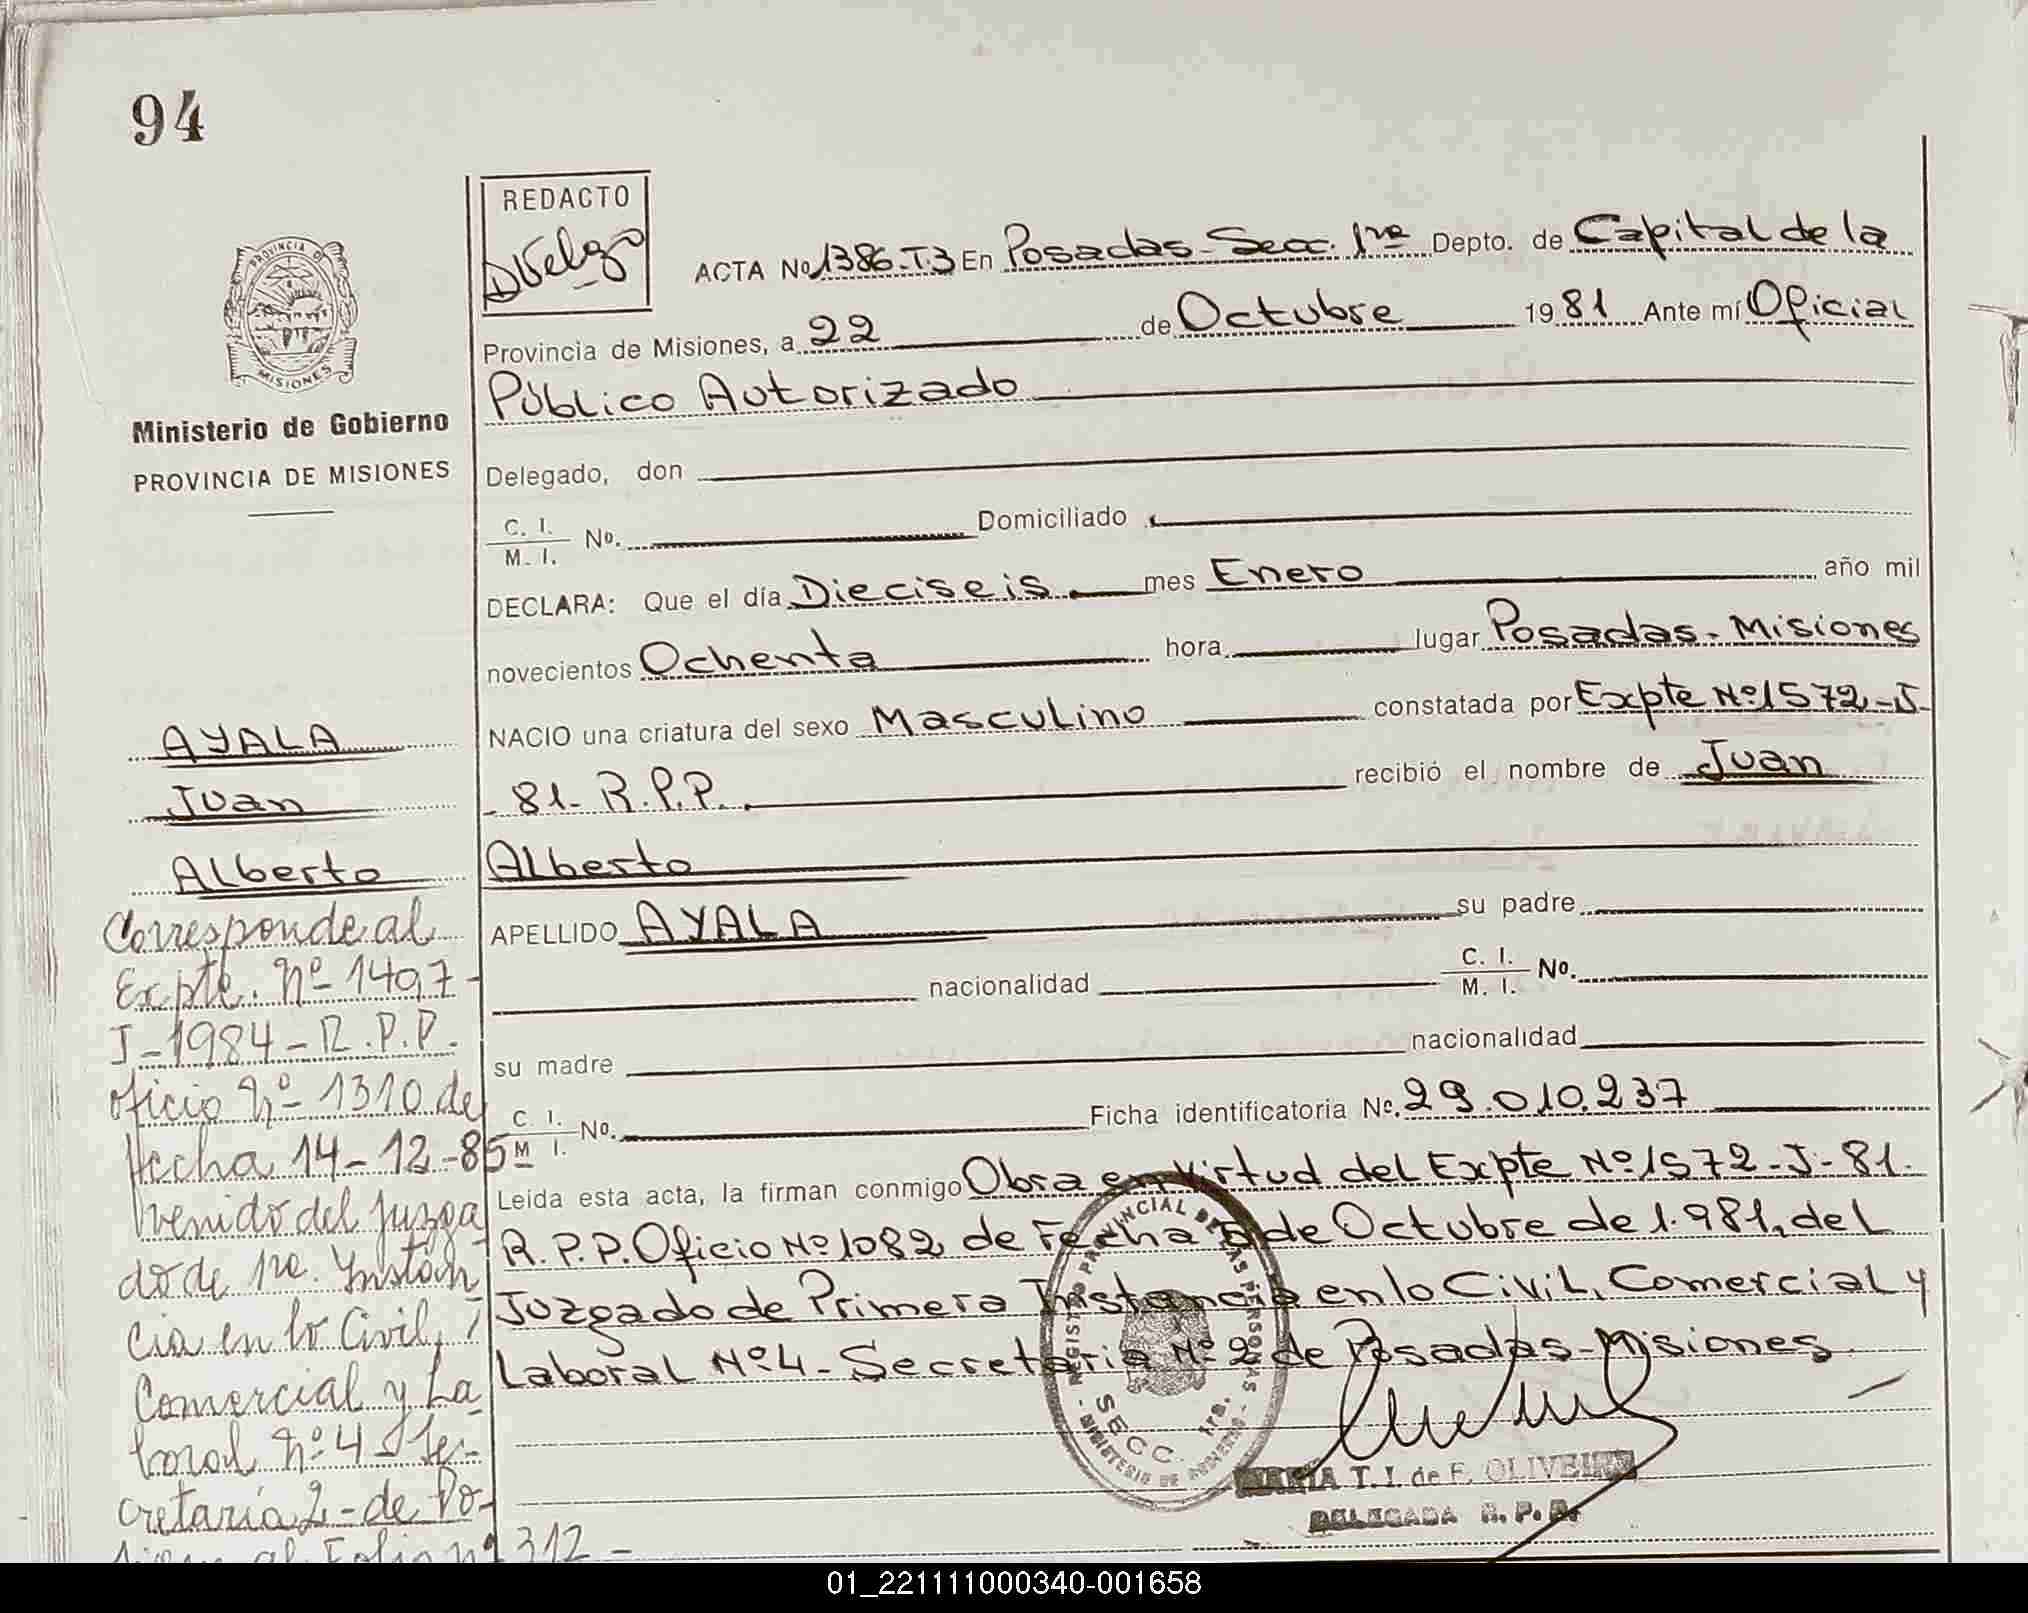 94
REDACTO
ACTA No 1386-T.3 En Posadas-Secc. 1ra Depto. de Capital de la
Provincia de Misiones, a 22 de Octubre 1981 Ante mí Oficial
Público Autorizado
Delegado, don
C. I.
M. I. No. Domiciliado
DECLARA: Que el día Dieciseis mes Enero año mil
novecientos Ochenta hora lugar Posadas-Misiones
NACIO una criatura del sexo Masculino constatada por Expte Nº1572-J-
81-R.P.P. recibió el nombre de Juan
Alberto
APELLIDO AYALA su padre
nacionalidad C. I.
M. I. No.
su madre nacionalidad
C. I.
M I. No. Ficha identificatoria No. 29.010.237
Leida esta acta, la firman conmigo Obra en Virtud del Expte Nº1572-J-81.
R.P.P. Oficio Nº1082 de Fecha 5 de Octubre de 1.981, del
Juzgado de Primera Instancia en lo Civil, Comercial y
Laboral Nº4-Secretaria Nº2 de Posadas-Misiones
PROVINCIA D
MISIONES
Ministerio de Gobierno
PROVINCIA DE MISIONES
AYALA
Juan
Alberto
Corresponde al
Expte. Nº 1497-
J-1984-R.P.P.
oficio Nº 1310 de
fecha 14-12-85
venido del juzga
do de 1ra. Instan
cia en lo Civil,
Comercial y La
boral Nº4-Se-
cretaría 2-de Po-
al Folio nº 312-
REGISTRO PROVINCIAL DE LAS PERSONAS
SECC. 1ra.
MINISTERIO DE GOBIERNO
MARIA T. I. de F. OLIVEIRA
DELEGADA R. P. P.
01_221111000340-001658